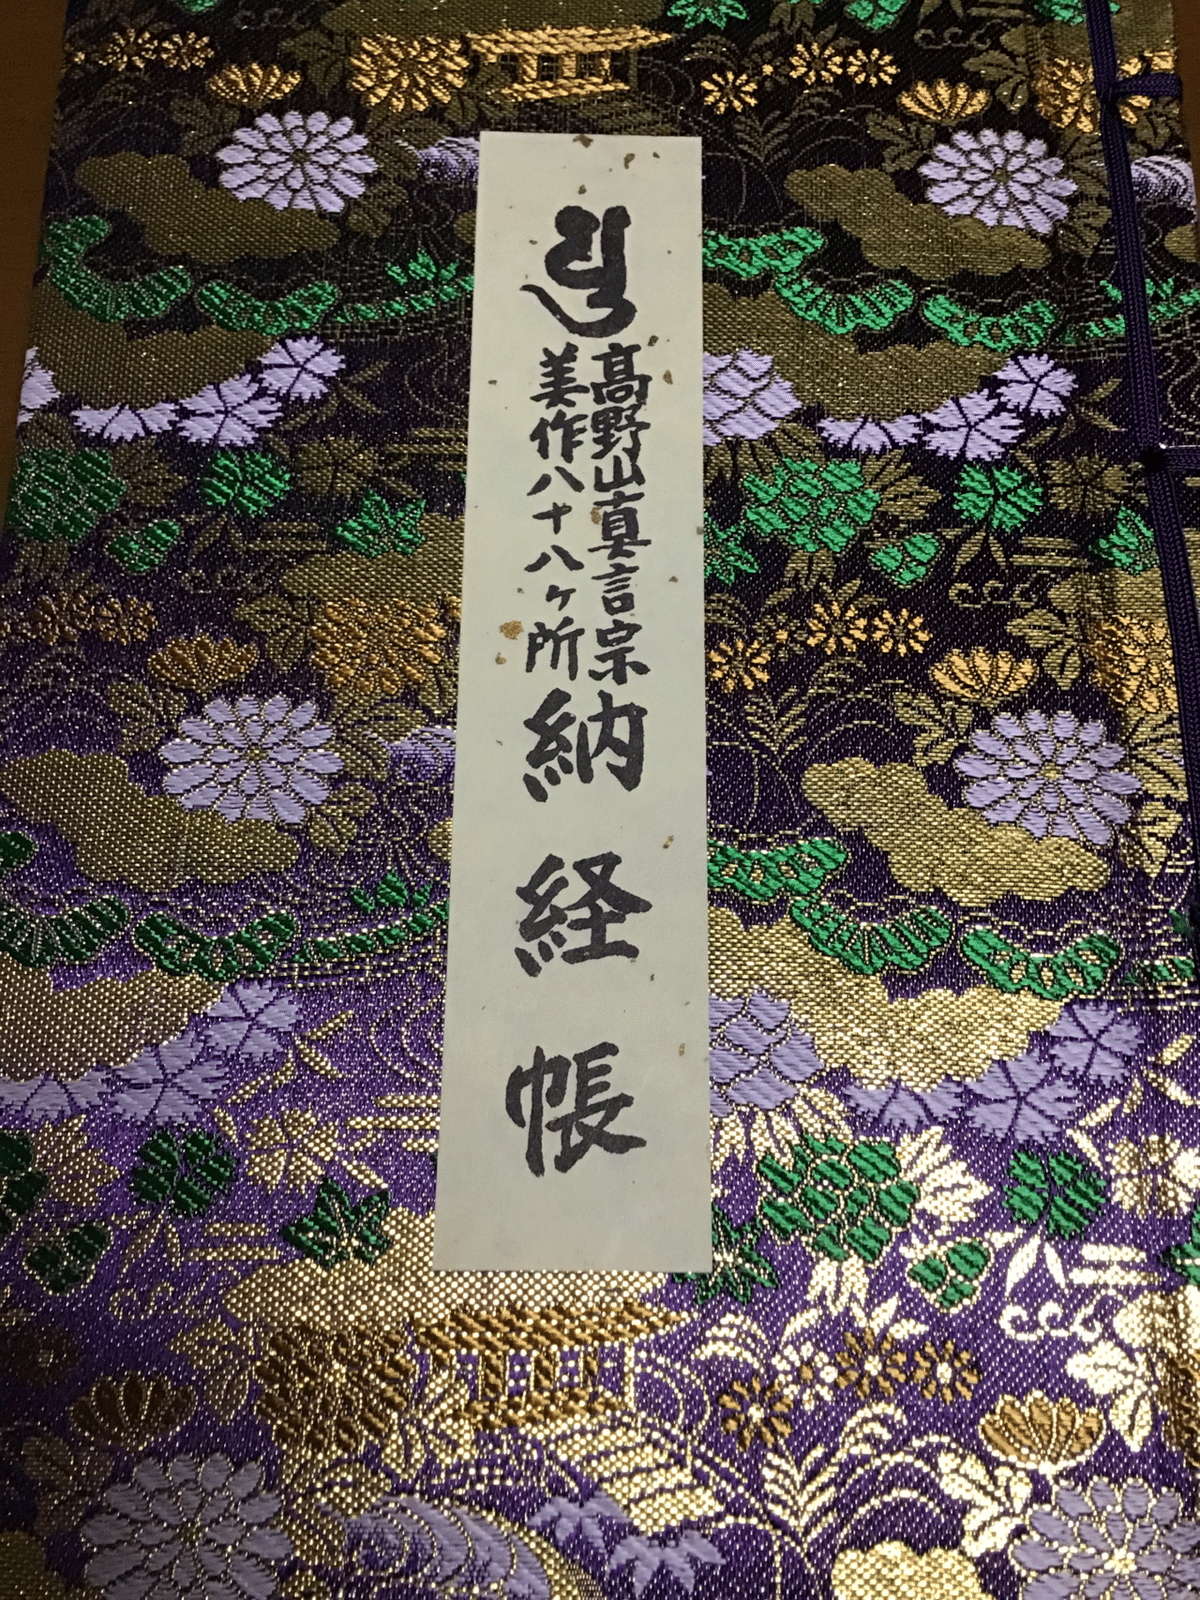 高野山真言宗
美作八十八ヶ所
納経帳